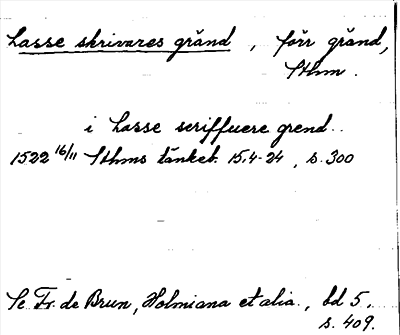 Lasse skrivares gränd, förr gränd,
Sthm.
i Lasse scriffuere grend..
1522 16/11 Sthms tänkeb. 1514-24, s. 300
Se Fr. de Brun, Holmiana et alia., bd 5,
s. 409.